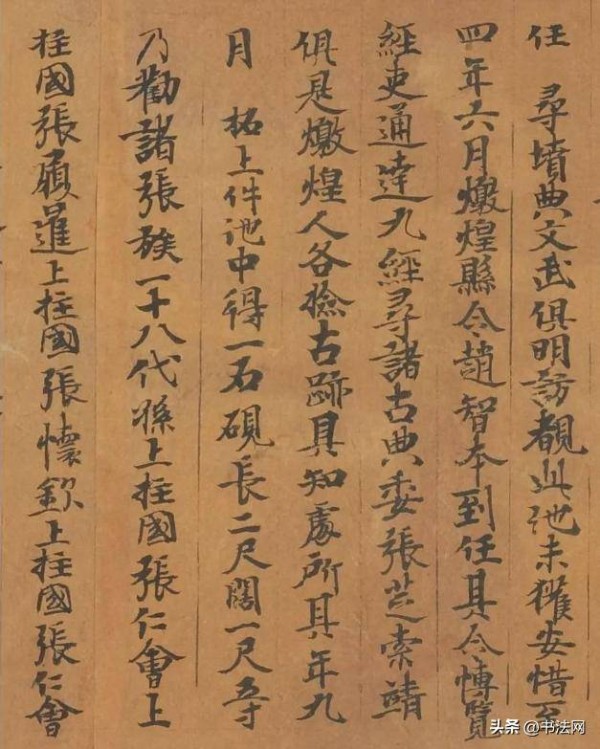 任 尋墳典文武俱明訪覩此池未獲安惜至
四年六月燉煌縣令趙智本到任其令博覽
經史通達九經尋諸古典委張芝索靖
俱是燉煌人各撿古跡具知處所其年九
月 拓上件池中得一石硯長二尺闊一尺
乃勸諸張族一十八代孫上柱國張仁會上
柱國張履暹上柱國張懷欽上柱國張仁會
头条 @书法网